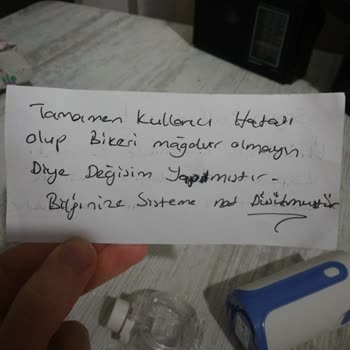 Tamamen Kullanıcı Hatası
olup Bikeri mağdur olmayın
Diye Değişim Yapılmıştır.
Bilginize Sisteme not